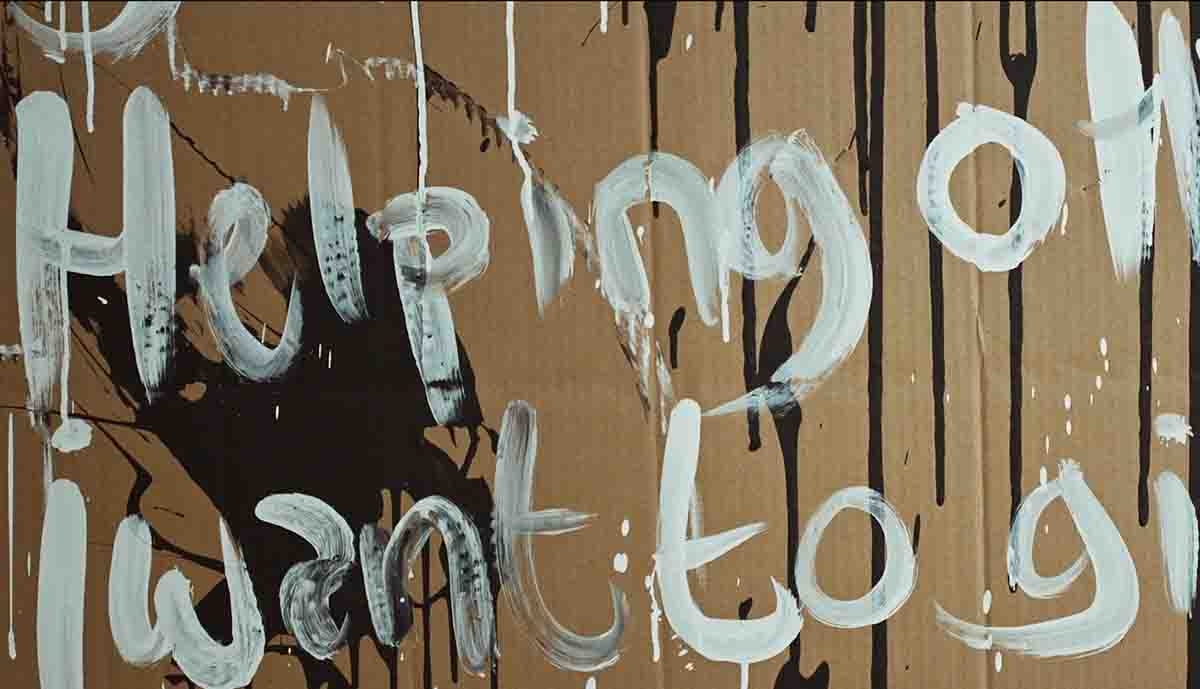 Helping
I want to